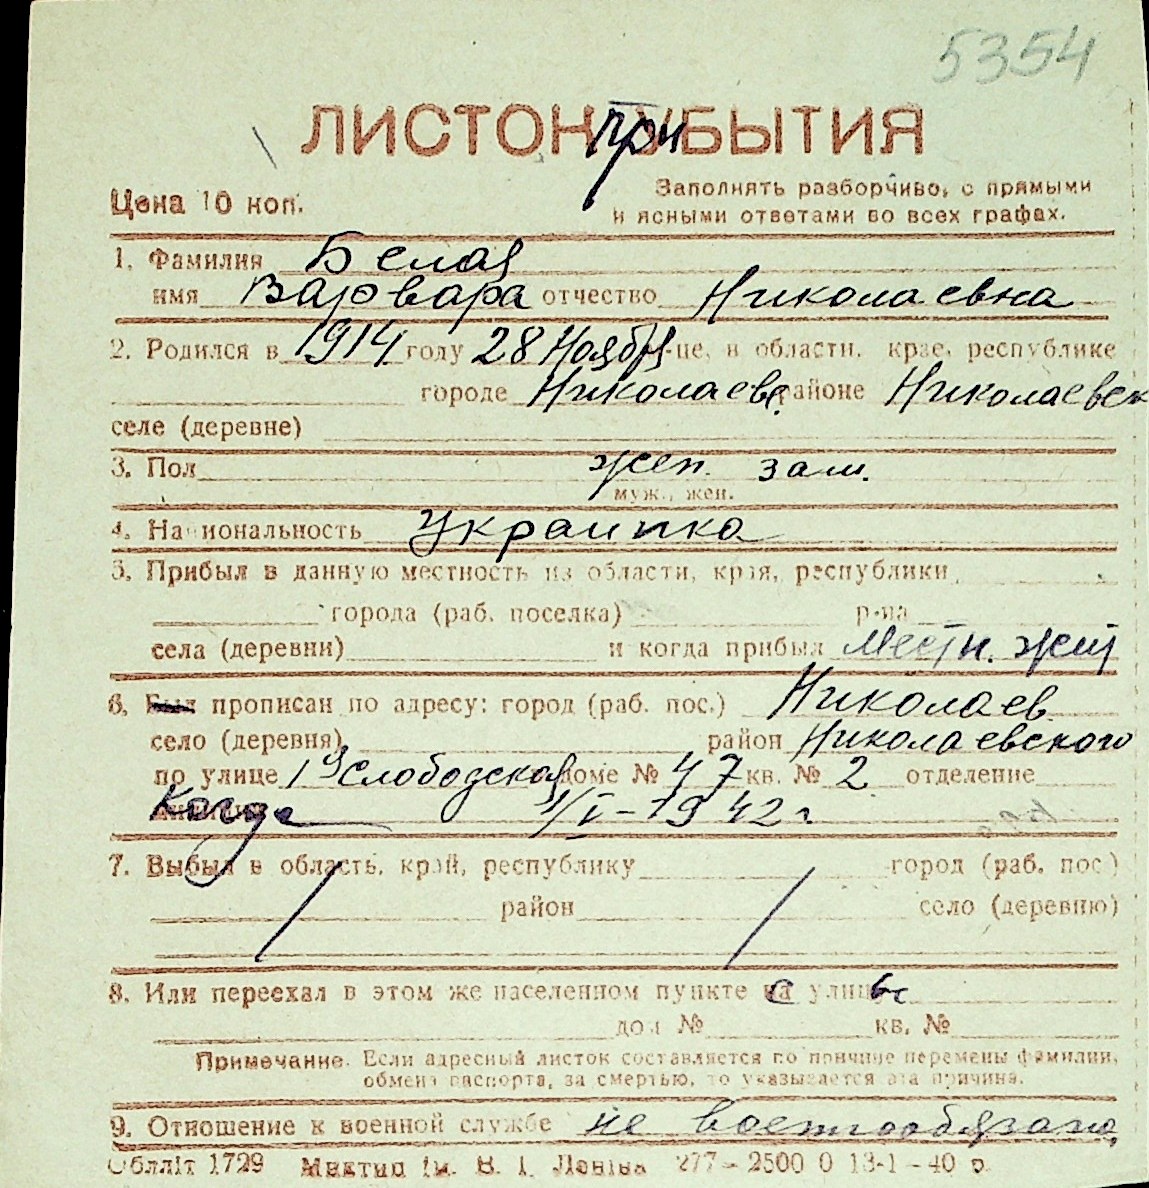 5354
ЛИСТОК при УБЫТИЯ
Цена 10 коп. Заполнять разборчиво, с прямыми
и ясными ответами во всех графах.
1. Фамилия Белая
имя Варвара отчество Николаевна
2. Родился в 1914 году 28 Ноября -це, в области, крае, республике
городе Николаеве районе Николаевск
селе (деревне)
3. Пол жен. зам.
муж., жен.
4. Национальность Украинка
5. Прибыл в данную местность из области, края, республики
города (раб. поселка) р-на
села (деревни) и когда прибыл местн. жит
6. Был прописан по адресу: город (раб. пос.) Николаев
село (деревня) район Николаевского
по улице 1я Слободская доме № 47 кв. № 2 отделение
когда 1/I-1942 г.
7. Выбыл в область, край, республику город (раб. пос.)
район село (деревню)
8. Или переехал в этом же населенном пункте с улицы
дом № кв. №
Примечание. Если адресный листок составляется по причине перемены фамилии,
обмена паспорта, за смертью, то указывается эта причина.
9. Отношение к военной службе не военнообязана
Обллiт 1729 Миктип iм. В. I. Ленiна 277—2500 0 13-1-40 р.